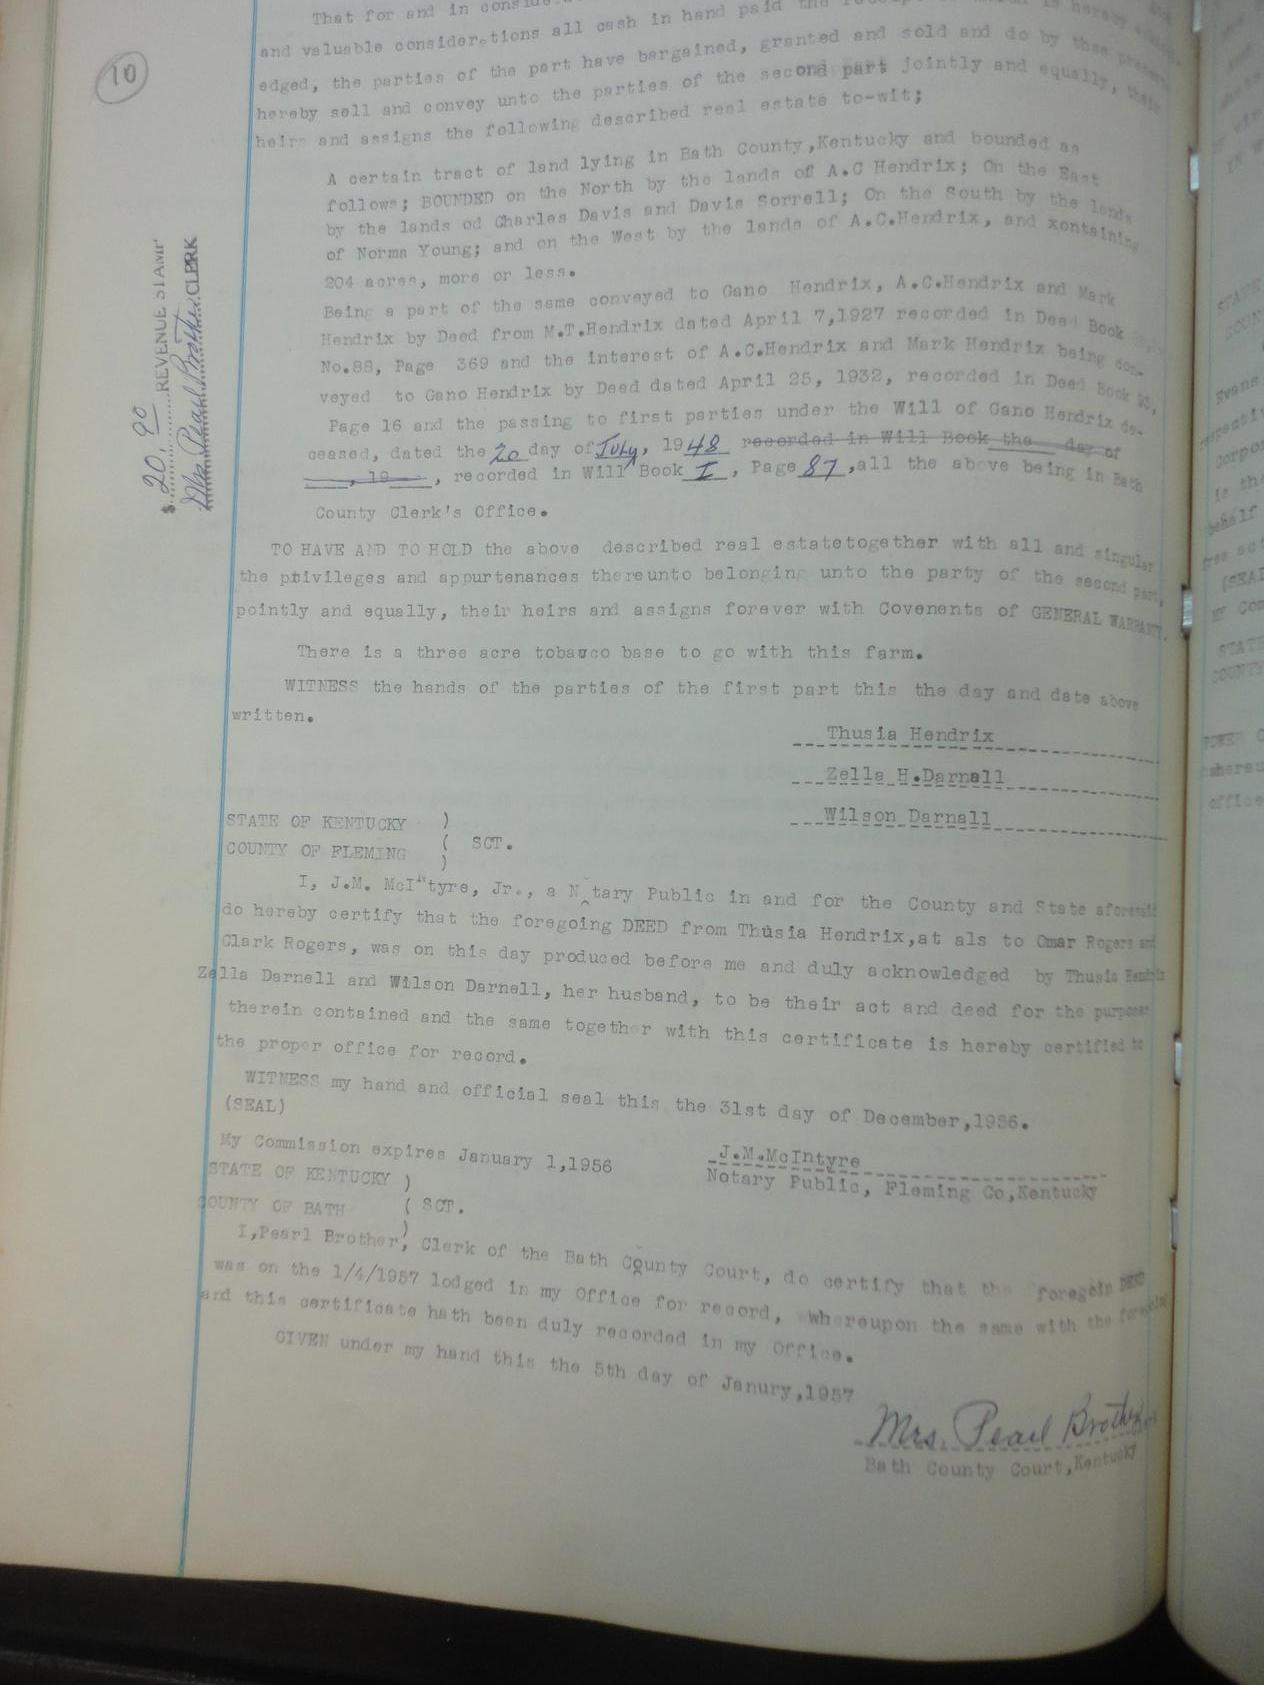 That for and in
and valuable considerations all cash in hand paid the
edged, the parties of the part have bargained, granted and sold and do by these presents
hereby sell and convey unto the parties of the second part jointly and equally, their
heirs and assigns the following described real estate to-wit;
A certain tract of land lying in Bath County,Kentucky and bounded as
follows; BOUNDED on the North by the lands of A.C Hendrix; On the East
by the lands od Charles Davis and Davis Sorrell; On the South by the lands
of Norma Young; and on the West by the lands of A.C.Hendrix, and xontaining
204 acres, more or less.
Being a part of the same conveyed to Gano Hendrix, A.C.Hendrix and Mark
Hendrix by Deed from M.T.Hendrix dated April 7,1927 recorded in Deed Book
No.88, Page 369 and the interest of A.C.Hendrix and Mark Hendrix being con-
veyed to Gano Hendrix by Deed dated April 25, 1932, recorded in Deed Book 93,
Page 16 and the passing to first parties under the Will of Gano Hendrix de-
ceased, dated the 20 day of July, 1948 recorded in Will Book the day of
, 19 , recorded in Will Book I , Page 87 ,all the above being in Bath
County Clerk's Office.
TO HAVE AND TO HOLD the above described real estatetogether with all and singular
the privileges and appurtenances thereunto belonging unto the party of the second part,
pointly and equally, their heirs and assigns forever with Covenents of GENERAL WARRANTY.
There is a three acre tobacco base to go with this farm.
WITNESS the hands of the parties of the first part this the day and date above
written.
Thusia Hendrix
Zella H.Darnall
Wilson Darnall
STATE OF KENTUCKY )
( SCT.
COUNTY OF FLEMING )
I, J.M. McIntyre, Jr., a Notary Public in and for the County and State aforesaid
do hereby certify that the foregoing DEED from Thusia Hendrix,at als to Omar Rogers and
Clark Rogers, was on this day produced before me and duly acknowledged by Thusia Hendrix
Zella Darnell and Wilson Darnell, her husband, to be their act and deed for the purposes
therein contained and the same together with this certificate is hereby certified to
the proper office for record.
WITNESS my hand and official seal this the 31st day of December,1956.
(SEAL)
My Commission expires January 1,1956
J.M.McIntyre
Notary Public, Fleming Co,Kentucky
STATE OF KENTUCKY )
( SCT.
COUNTY OF BATH )
I,Pearl Brother, Clerk of the Bath County Court, do certify that the foregoin DEED
was on the 1/4/1957 lodged in my Office for record, whereupon the same with the foregoin
and this certificate hath been duly recorded in my Office.
GIVEN under my hand this the 5th day of Janury,1957
Mrs. Pearl Brother
Bath County Court,Kentucky
10
$ 20.90 REVENUE STAMP
Mrs Pearl Brother CLERK